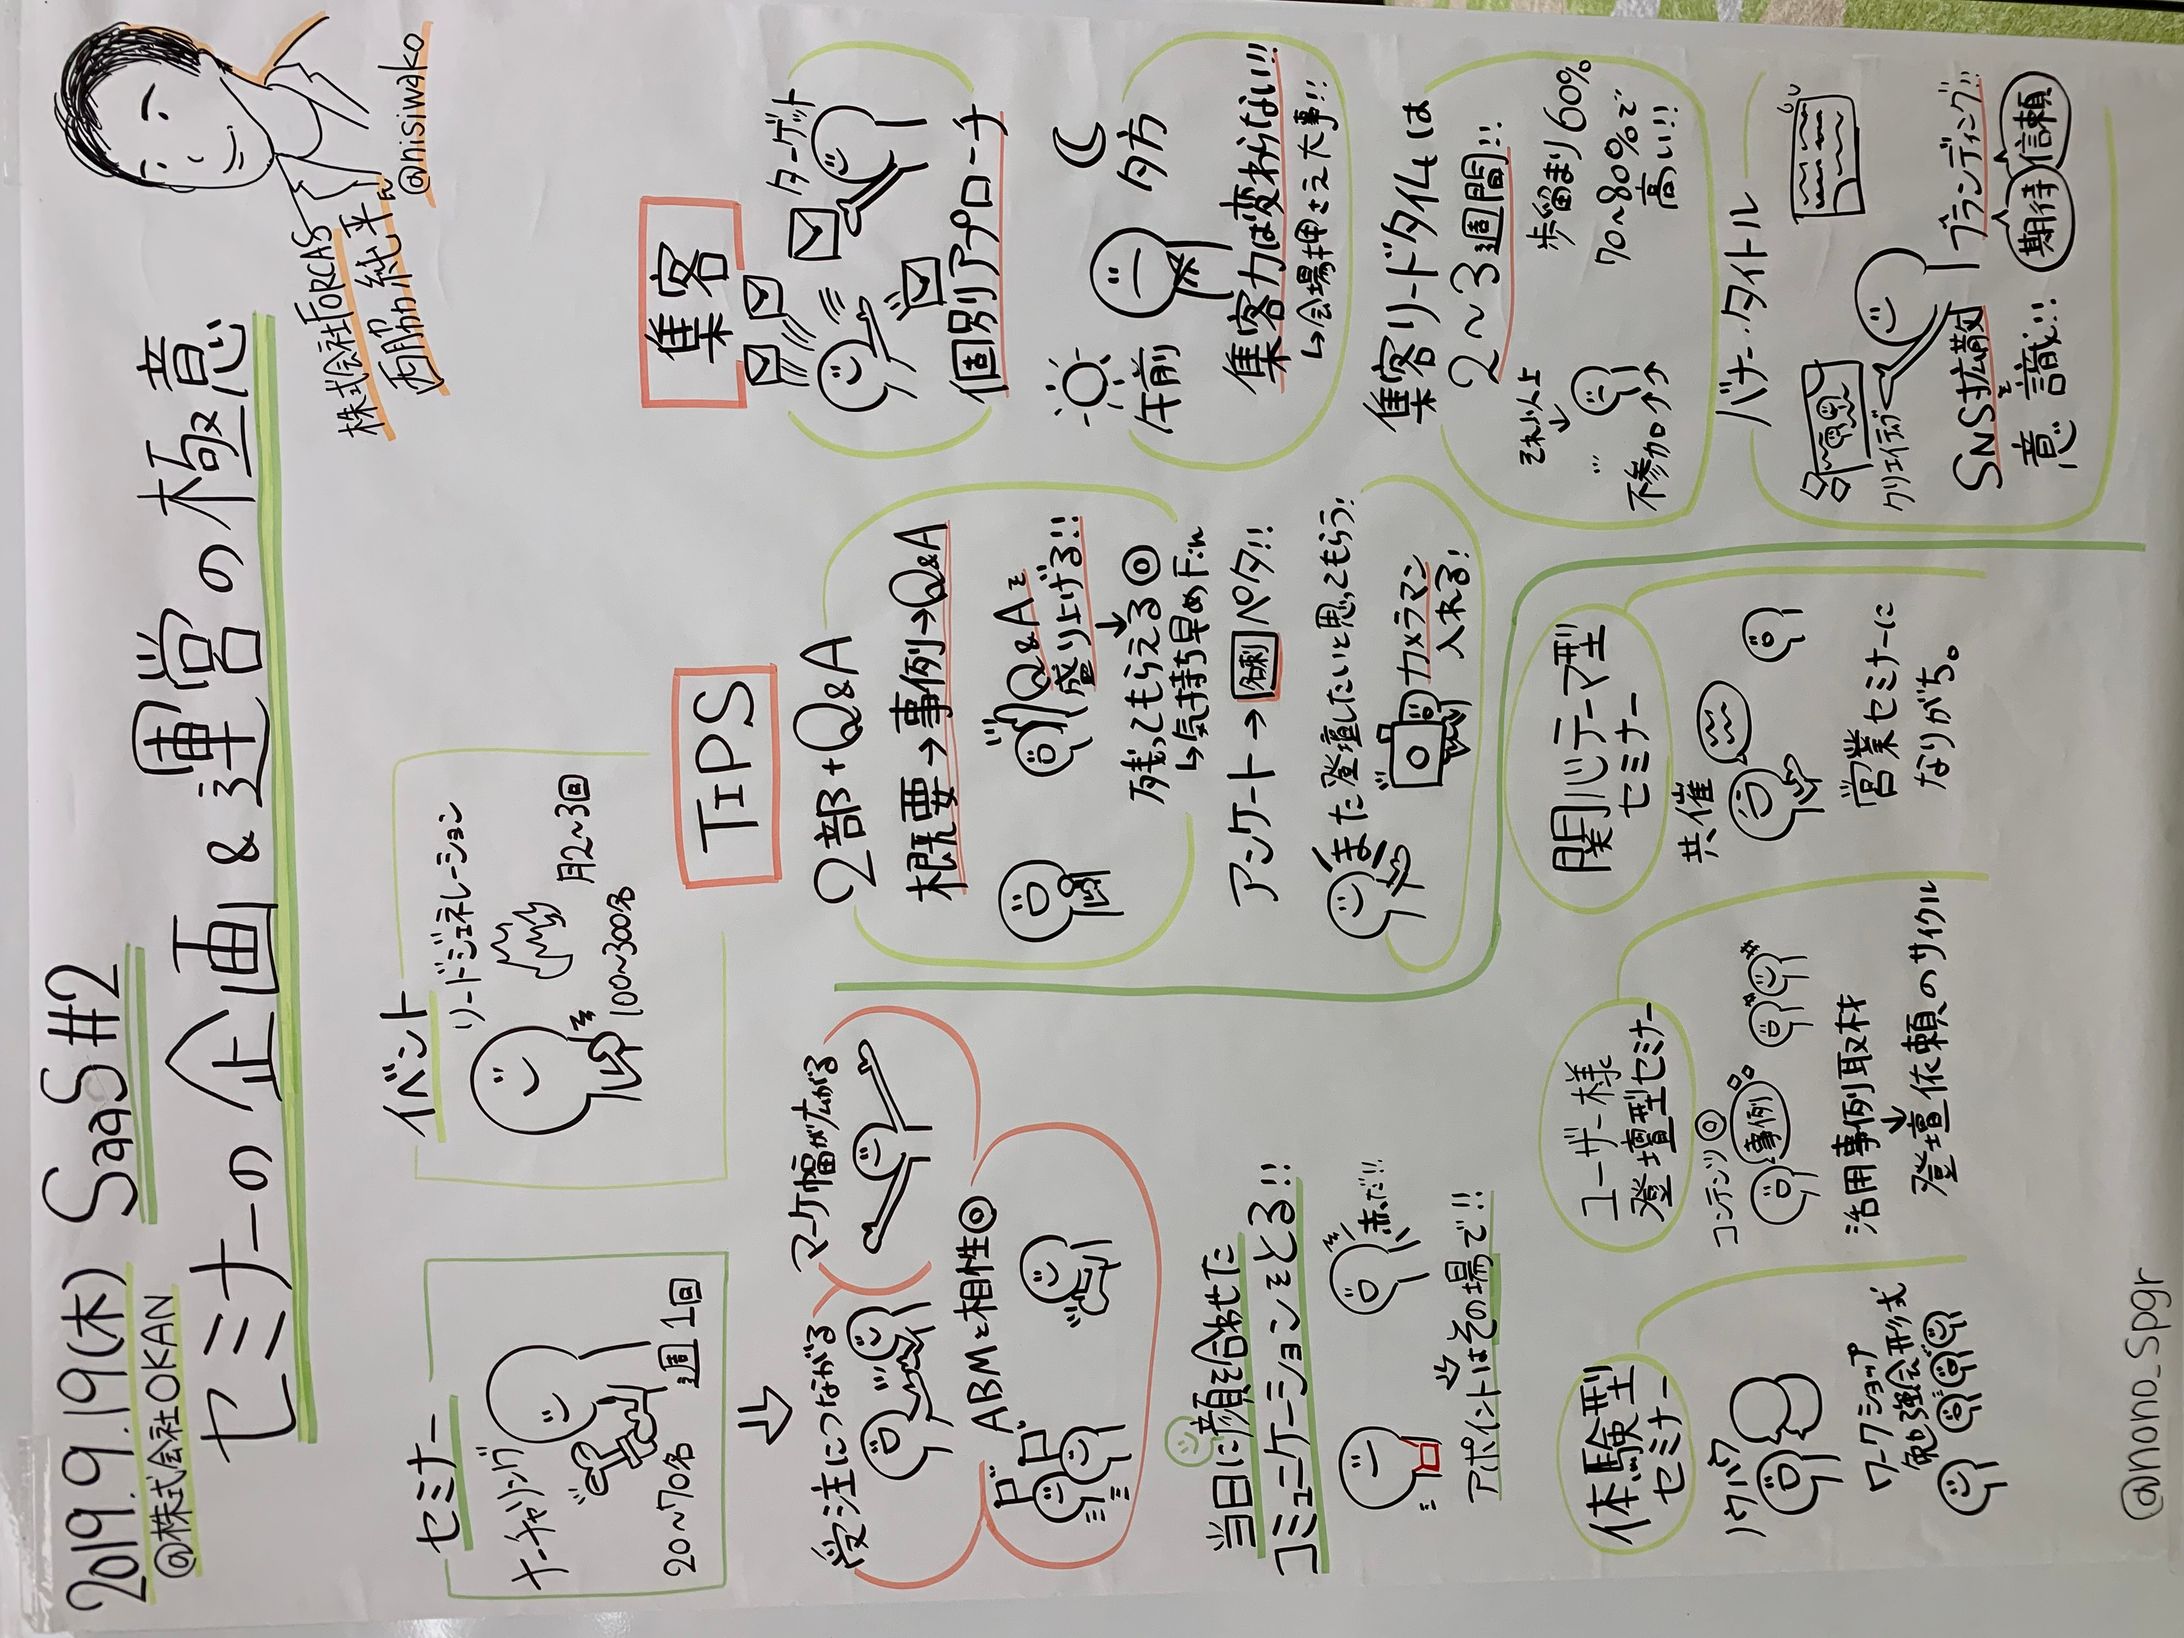 2019.9.19(木) SaaS#2
@株式会社OKAN
セミナーの企画&運営の極意
株式会社FORCAS
西脇 純平氏
@nisiwako
セミナー
ナーチャリング
20〜70名
週1回
イベント
リードジェネレーション
月2〜3回
100〜300名
受注につながる
マーケ幅が広がる
ABMと相性◎
当日に顔を合わせた
コミュニケーションをとる!!
赤だ!!
アポイントはその場で!!
TIPS
2部+Q&A
概要→事例→Q&A
Q&Aを
盛り上げる!!
残ってもらえる◎
↳気持ち早めFin
アンケート→名刺ペタ!!
また登壇したいと思ってもらう!
また
カメラマン
入れる!
集客
ターゲット
個別アプローチ
午前
夕方
集客力は変わらない!!
↳会場押さえ大事!!
集客リードタイムは
2〜3週間!!
それ以上
↓
不参加↗↗
歩留まり60%
70〜80%で
高い!!
バナー・タイトル
クリエイティブ
SNS拡散を
意識!!
ブランディング!!
期待
信頼
体験型
セミナー
ノウハウ
ワークショップ
勉強会形式
ユーザー様
登壇型セミナー
コンテンツ◎
事例
活用事例取材
↓
登壇依頼のサイクル
関心テーマ型
セミナー
共催
営業セミナーに
なりがち。
@nono_spgr